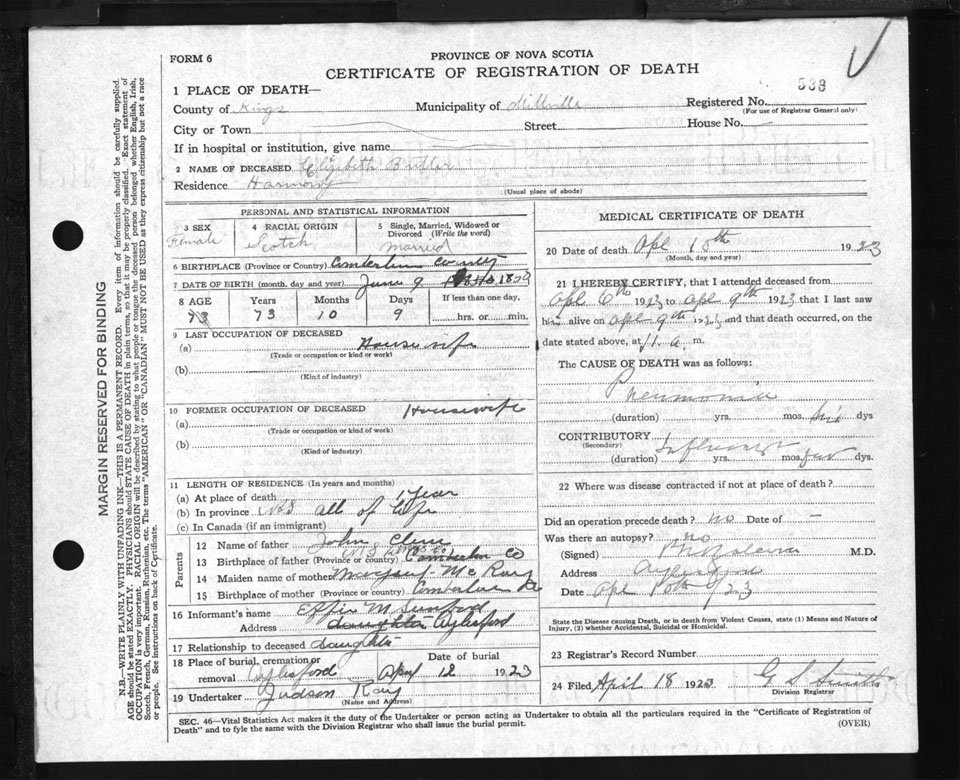 FORM 6
PROVINCE OF NOVA SCOTIA
CERTIFICATE OF REGISTRATION OF DEATH
533
1 PLACE OF DEATH—
County of Kings Municipality of Millville Registered No.
(For use of Registrar General only)
City or Town Street House No.
If in hospital or institution, give name
2 NAME OF DECEASED Elizabeth Butler
Residence Harmony
(Usual place of abode)
PERSONAL AND STATISTICAL INFORMATION
3 SEX 4 RACIAL ORIGIN 5 Single, Married, Widowed or Divorced (Write the word)
Female Scotch Married
6 BIRTHPLACE (Province or Country) County
7 DATE OF BIRTH (month, day and year) June 9
8 AGE Years Months Days If less than one day,
73 73 10 9 hrs. or min.
9 LAST OCCUPATION OF DECEASED
(a) House wife
(Trade or occupation or kind or work)
(b)
(Kind of industry)
10 FORMER OCCUPATION OF DECEASED Housewife
(a)
(Trade or occupation or kind of work)
(b)
(Kind of industry)
11 LENGTH OF RESIDENCE (In years and months)
(a) At place of death 1 year
(b) In province NS all of life
(c) In Canada (if an immigrant)
Parents
12 Name of father John
13 Birthplace of father (Province or country) Co
14 Maiden name of mother Margaret Mc Ray
15 Birthplace of mother (Province or country)
16 Informant's name Effie M
Address daughter Aylesford
17 Relationship to deceased daughter
18 Place of burial, cremation or removal Aylesford Date of burial Apl 12 1923
19 Undertaker Judson Ray
(Name and Address)
MEDICAL CERTIFICATE OF DEATH
20 Date of death Apl 18th 1923
(Month, day and year)
21 I HEREBY CERTIFY, that I attended deceased from
Apl 6th 1923 to Apl 9th 1923 that I last saw
h alive on Apl 9th 1923 and that death occurred, on
date stated above, at 11 a. m.
The CAUSE OF DEATH was as follows:
Pneumonia
(duration) yrs. mos. dys
CONTRIBUTORY Influenza
(Secondary)
(duration) yrs. mos. few dys.
22 Where was disease contracted if not at place of death?
Did an operation precede death? no Date of —
Was there an autopsy? no
(Signed) M.D.
Address Aylesford
Date Apl 10th 1923
State the Disease causing Death, or in death from Violent Causes, state (1) Means and Nature of Injury, (2) whether Accidental, Suicidal or Homicidal.
23 Registrar's Record Number
24 Filed April 18 1923 G S Smith
Division Registrar
SEC. 46—Vital Statistics Act makes it the duty of the Undertaker or person acting as Undertaker to obtain all the particulars required in the "Certificate of Registration of
Death" and to fyle the same with the Division Registrar who shall issue the burial permit.
(OVER)
MARGIN RESERVED FOR BINDING
N.B.—WRITE PLAINLY WITH UNFADING INK—THIS IS A PERMANENT RECORD. Every item of information should be carefully supplied.
AGE should be stated EXACTLY. PHYSICIANS should STATE CAUSE OF DEATH in plain terms, so that it may be properly classified. Exact statement of
OCCUPATION is very important. RACIAL ORIGIN will be described by stating to what people or tongue the deceased person belonged whether English, Irish,
Scotch, French, German, Russian, Ruthenian, etc. The terms "AMERICAN" OR "CANADIAN" MUST NOT BE USED as they express citizenship but not a race
or people. See instructions on back of Certificate.